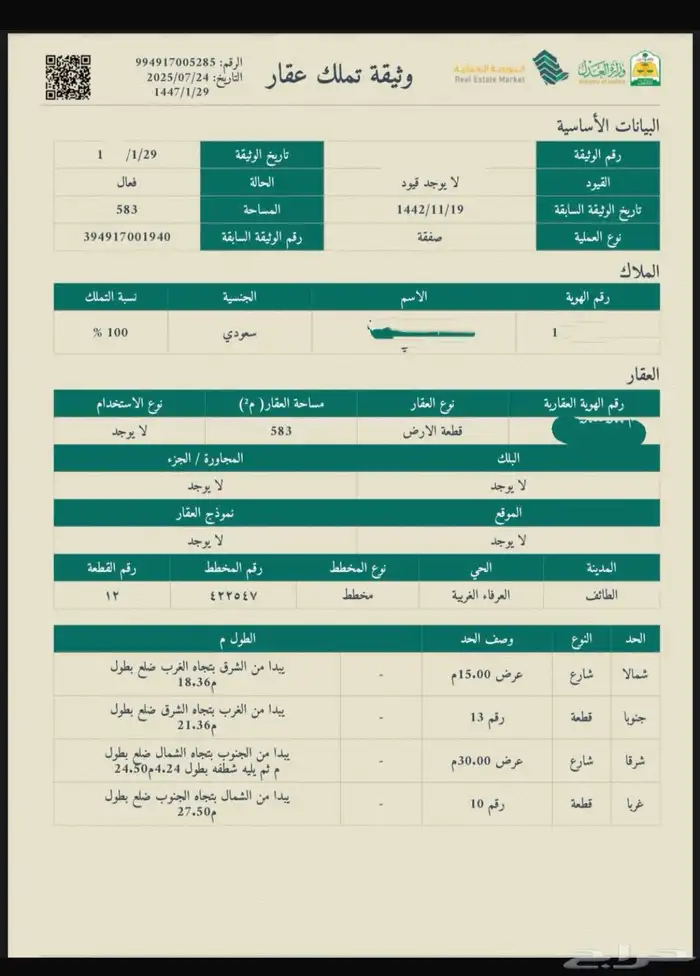 الرقم: 994917005285
التاريخ: 2025/07/24
1447/1/29
وثيقة تملك عقار
البورصة العقارية
Real Estate Market
وزارة العدل
البيانات الأساسية
رقم الوثيقة تاريخ الوثيقة 1/29/ 1
القيود لا يوجد قيود الحالة فعال
تاريخ الوثيقة السابقة 1442/11/19 المساحة 583
نوع العملية صفقة رقم الوثيقة السابقة 394917001940
الملاك
رقم الهوية الاسم الجنسية نسبة التملك
1 سعودي 100 %
العقار
رقم الهوية العقارية نوع العقار مساحة العقار( م²) نوع الاستخدام
قطعة الارض 583 لا يوجد
البلك المجاورة / الجزء
لا يوجد لا يوجد
الموقع نموذج العقار
لا يوجد لا يوجد
المدينة الحي نوع المخطط رقم المخطط رقم القطعة
الطائف العرفاء الغربية مخطط ٤٢٢٥٤٧ ١٢
الحد النوع وصف الحد الطول م
شمالا شارع عرض 15.00م - يبدا من الشرق بتجاه الغرب ضلع بطول
18.36م
جنوبا قطعة رقم 13 - يبدا من الغرب بتجاه الشرق ضلع بطول
21.36م
شرقا شارع عرض 30.00م - يبدا من الجنوب بتجاه الشمال ضلع بطول
24.50م ثم يليه شطفه بطول 4.24م
غربا قطعة رقم 10 - يبدا من الشمال بتجاه الجنوب ضلع بطول
27.50م
حراج